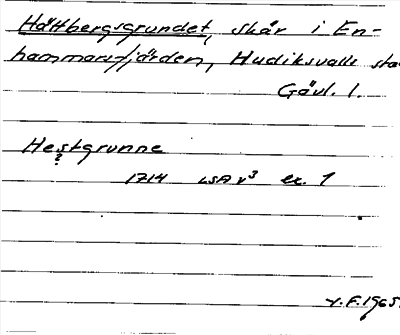 Hättbergsgrundet, skär i En-
hammarsfjärden, Hudiksvalls sta
Gävl. l.
Hestgrunne
?
1714 LSA v³ ex. 1
V.F.1965.